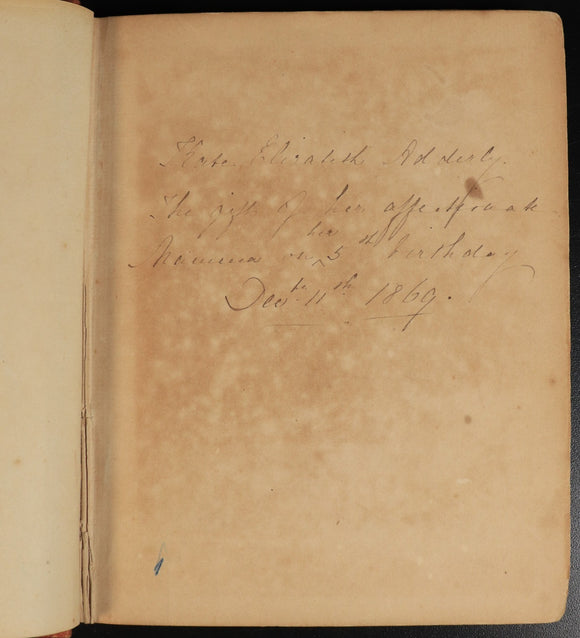 Kate Elizabeth Adderly.
The gift of her affectionate
Mamma on her 5th birthday
Decbr 11th 1869.